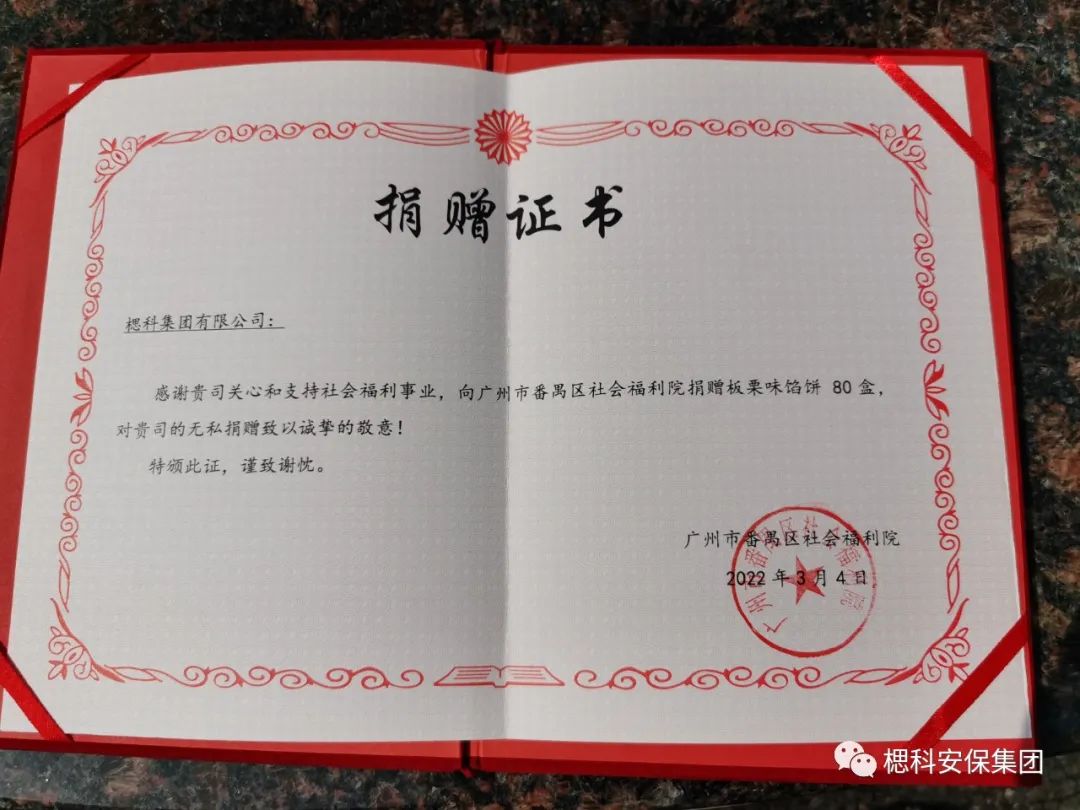 捐赠证书
楒科集团有限公司：
感谢贵司关心和支持社会福利事业，向广州市番禺区社会福利院捐赠板栗味馅饼 80 盒，
对贵司的无私捐赠致以诚挚的敬意！
特颁此证，谨致谢忱。
广州市番禺区社会福利院
2022 年 3 月 4 日
广州市番禺区社会福利院
楒科安保集团